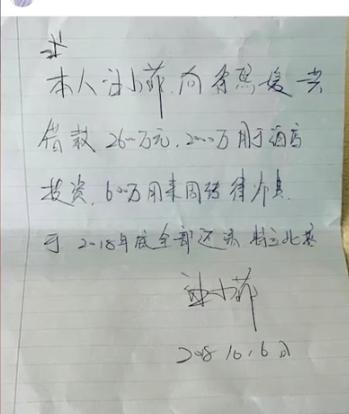 本人汪小菲向
借款2600万元,2000万用于酒店
投资,600万用来周转
于2018年底全部还清 特立此据
汪小菲
2018.10.6日